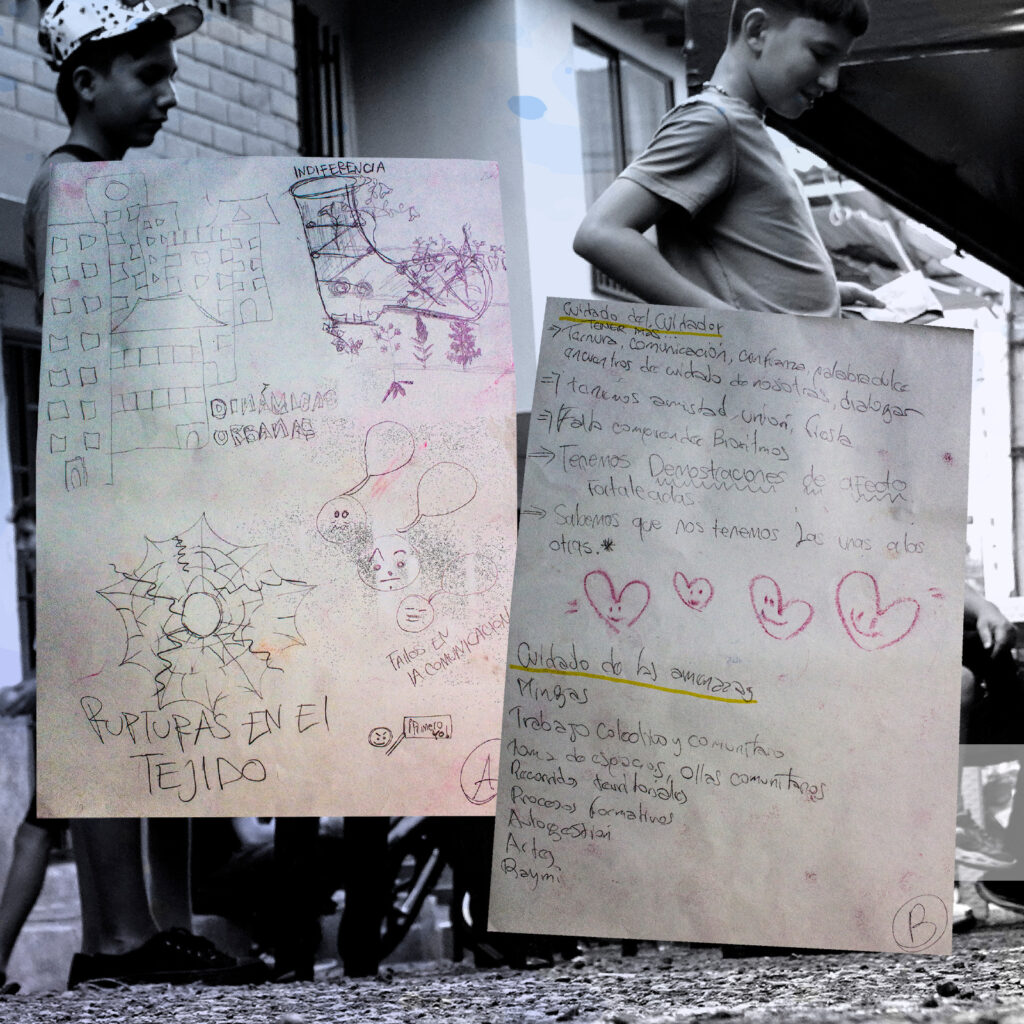 INDIFERENCIA
DINÁMICAS
URBANAS
FALLOS EN
LA COMUNICACIÓN
RUPTURAS EN El
TEJIDO
Primero
yo!
A
Cuidado del Cuidador
TENER MÁS...
⇒ Ternura, comunicación, confianza, palabra dulce
encuentros de cuidado de nosotras, dialogar
⇒ tenemos amistad, unión, fiesta
⇒ Falta comprender Bioritmos
⇒ Tenemos Demostraciones de afecto
Fortaleadas
⇒ Sabemos que nos tenemos las unas a las
otras.*
Cuidado de las amenazas
Mingas
Trabajo colectivo y comunitario
Toma de espacios, ollas comunitarias
Recorridos territoriales
Procesos formativos
Autogestión
Artes
Raymi
B